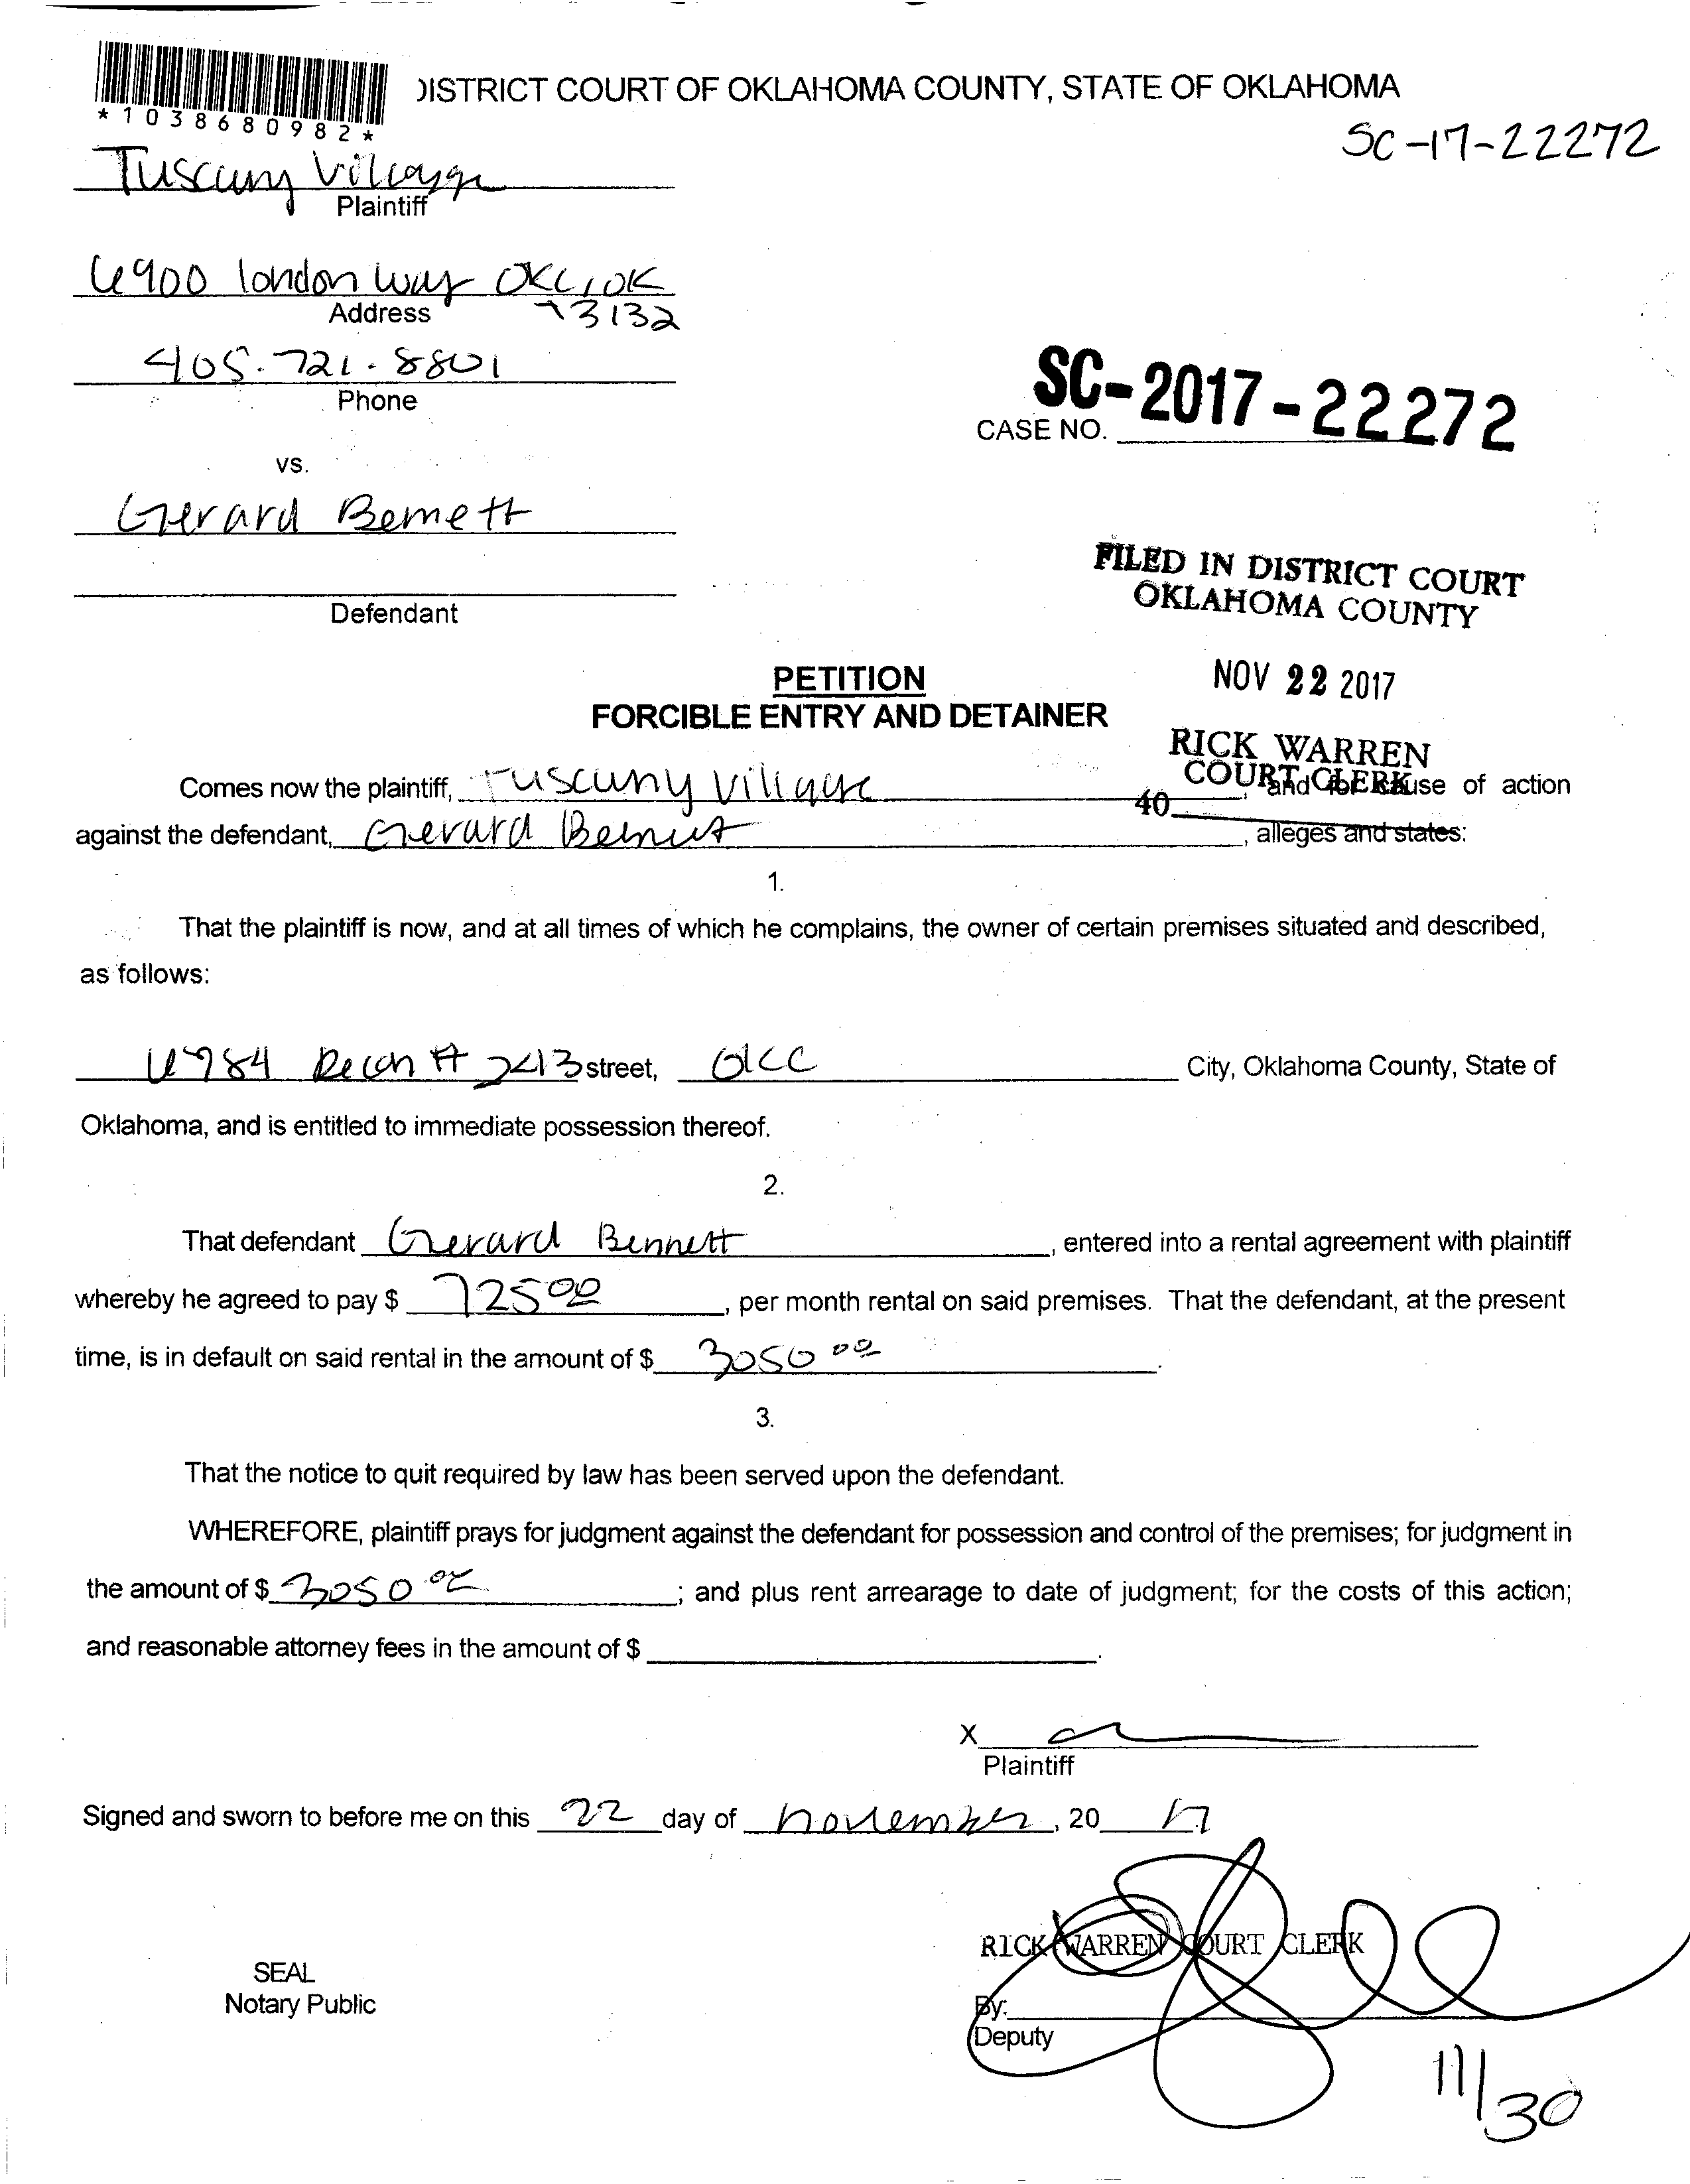 DISTRICT COURT OF OKLAHOMA COUNTY, STATE OF OKLAHOMA
*1038680982*
SC-17-22272
Tuscany Village
Plaintiff
6900 london way OKC, OK
Address 73132
405.721.8801
Phone
SC-2017-22272
CASE NO.
vs.
Gerard Bennett
Defendant
FILED IN DISTRICT COURT
OKLAHOMA COUNTY
PETITION
NOV 22 2017
FORCIBLE ENTRY AND DETAINER
RICK WARREN
COURT CLERK
Comes now the plaintiff, Tuscany Village, and for cause of action
40
against the defendant, Gerard Bennett, alleges and states:
1.
That the plaintiff is now, and at all times of which he complains, the owner of certain premises situated and described,
as follows:
6984 # 2413 street, OKC City, Oklahoma County, State of
Oklahoma, and is entitled to immediate possession thereof.
2.
That defendant Gerard Bennett, entered into a rental agreement with plaintiff
whereby he agreed to pay $ 725 00, per month rental on said premises. That the defendant, at the present
time, is in default on said rental in the amount of $ 3050 00.
3.
That the notice to quit required by law has been served upon the defendant.
WHEREFORE, plaintiff prays for judgment against the defendant for possession and control of the premises; for judgment in
the amount of $ 3050 00; and plus rent arrearage to date of judgment; for the costs of this action;
and reasonable attorney fees in the amount of $ .
X
Plaintiff
Signed and sworn to before me on this 22 day of november, 20 17
RICK WARREN COURT CLERK
SEAL
Notary Public
By:
Deputy
11/30